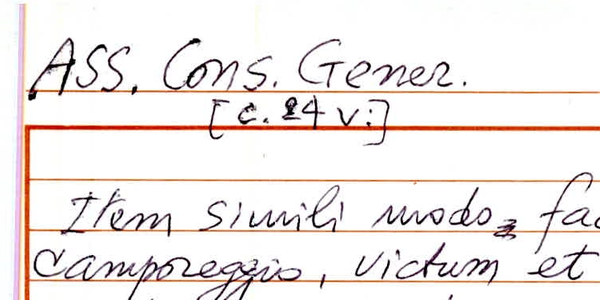 ASS. Cons. Gener.
[c. 24 v.]
Item simili modo, fac
Camporeggio, victum et